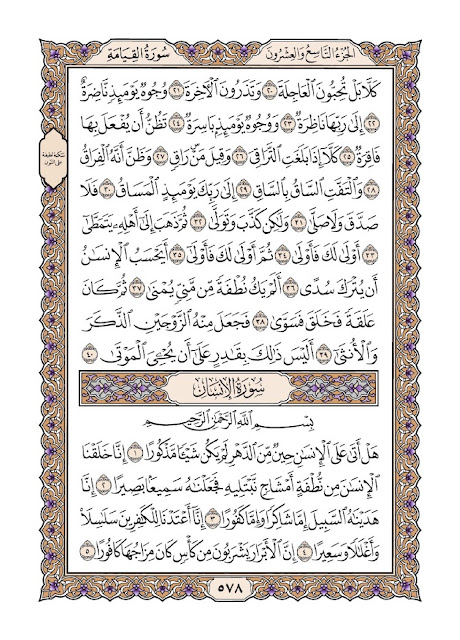 سُورَةُ القِيَامَةِ
الجُزْءُ التَّاسِعُ وَالعِشْرُونَ
كَلَّا بَلْ تُحِبُّونَ الْعَاجِلَةَ ٢٠ وَتَذَرُونَ الْآخِرَةَ ٢١ وُجُوهٌ يَوْمَئِذٍ نَّاضِرَةٌ
٢٢ إِلَىٰ رَبِّهَا نَاظِرَةٌ ٢٣ وَوُجُوهٌ يَوْمَئِذٍ بَاسِرَةٌ ٢٤ تَظُنُّ أَن يُفْعَلَ بِهَا
فَاقِرَةٌ ٢٥ كَلَّا إِذَا بَلَغَتِ التَّرَاقِيَ ٢٦ وَقِيلَ مَنْ رَاقٍ ٢٧ وَظَنَّ أَنَّهُ الْفِرَاقُ
٢٨ وَالْتَفَّتِ السَّاقُ بِالسَّاقِ ٢٩ إِلَىٰ رَبِّكَ يَوْمَئِذٍ الْمَسَاقُ ٣٠ فَلَا
صَدَّقَ وَلَا صَلَّىٰ ٣١ وَلَٰكِن كَذَّبَ وَتَوَلَّىٰ ٣٢ ثُمَّ ذَهَبَ إِلَىٰ أَهْلِهِ يَتَمَطَّىٰ
٣٣ أَوْلَىٰ لَكَ فَأَوْلَىٰ ٣٤ ثُمَّ أَوْلَىٰ لَكَ فَأَوْلَىٰ ٣٥ أَيَحْسَبُ الْإِنسَانُ
أَن يُتْرَكَ سُدًى ٣٦ أَلَمْ يَكُ نُطْفَةً مِّن مَّنِيٍّ يُمْنَىٰ ٣٧ ثُمَّ كَانَ
عَلَقَةً فَخَلَقَ فَسَوَّىٰ ٣٨ فَجَعَلَ مِنْهُ الزَّوْجَيْنِ الذَّكَرَ
وَالْأُنثَىٰ ٣٩ أَلَيْسَ ذَٰلِكَ بِقَادِرٍ عَلَىٰ أَن يُحْيِيَ الْمَوْتَىٰ ٤٠
سُورَةُ الإِنسَانِ
بِسْمِ اللَّهِ الرَّحْمَٰنِ الرَّحِيمِ
هَلْ أَتَىٰ عَلَى الْإِنسَانِ حِينٌ مِّنَ الدَّهْرِ لَمْ يَكُن شَيْئًا مَّذْكُورًا ١ إِنَّا خَلَقْنَا
الْإِنسَانَ مِن نُّطْفَةٍ أَمْشَاجٍ نَّبْتَلِيهِ فَجَعَلْنَاهُ سَمِيعًا بَصِيرًا ٢ إِنَّا
هَدَيْنَاهُ السَّبِيلَ إِمَّا شَاكِرًا وَإِمَّا كَفُورًا ٣ إِنَّا أَعْتَدْنَا لِلْكَافِرِينَ سَلَاسِلَا
وَأَغْلَالًا وَسَعِيرًا ٤ إِنَّ الْأَبْرَارَ يَشْرَبُونَ مِن كَأْسٍ كَانَ مِزَاجُهَا كَافُورًا ٥
٥٧٨